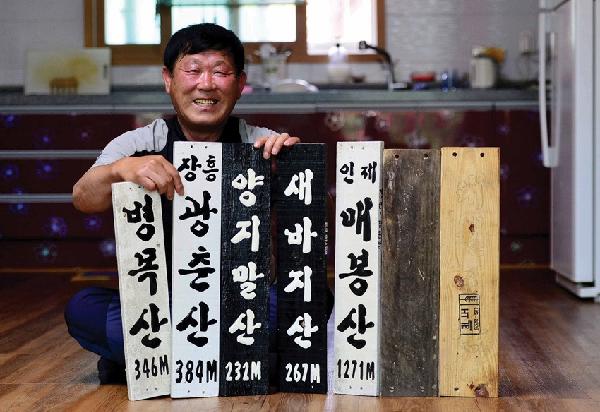 병목산
346M
장흥
광춘산
384M
양지말산
232M
새바지산
267M
인제
매봉산
1271M